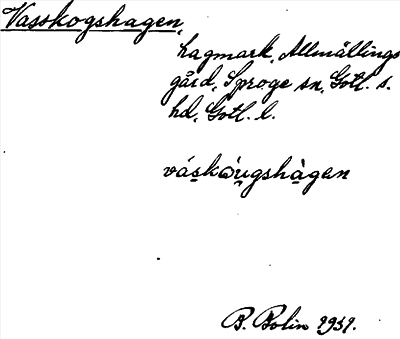 Vasskogshagen,
hagmark, Allmällings
gård, Sproge sn, Gotl. s.
hd, Gotl. l.
váskòu̯gshàgen
B. Bolin 1931.